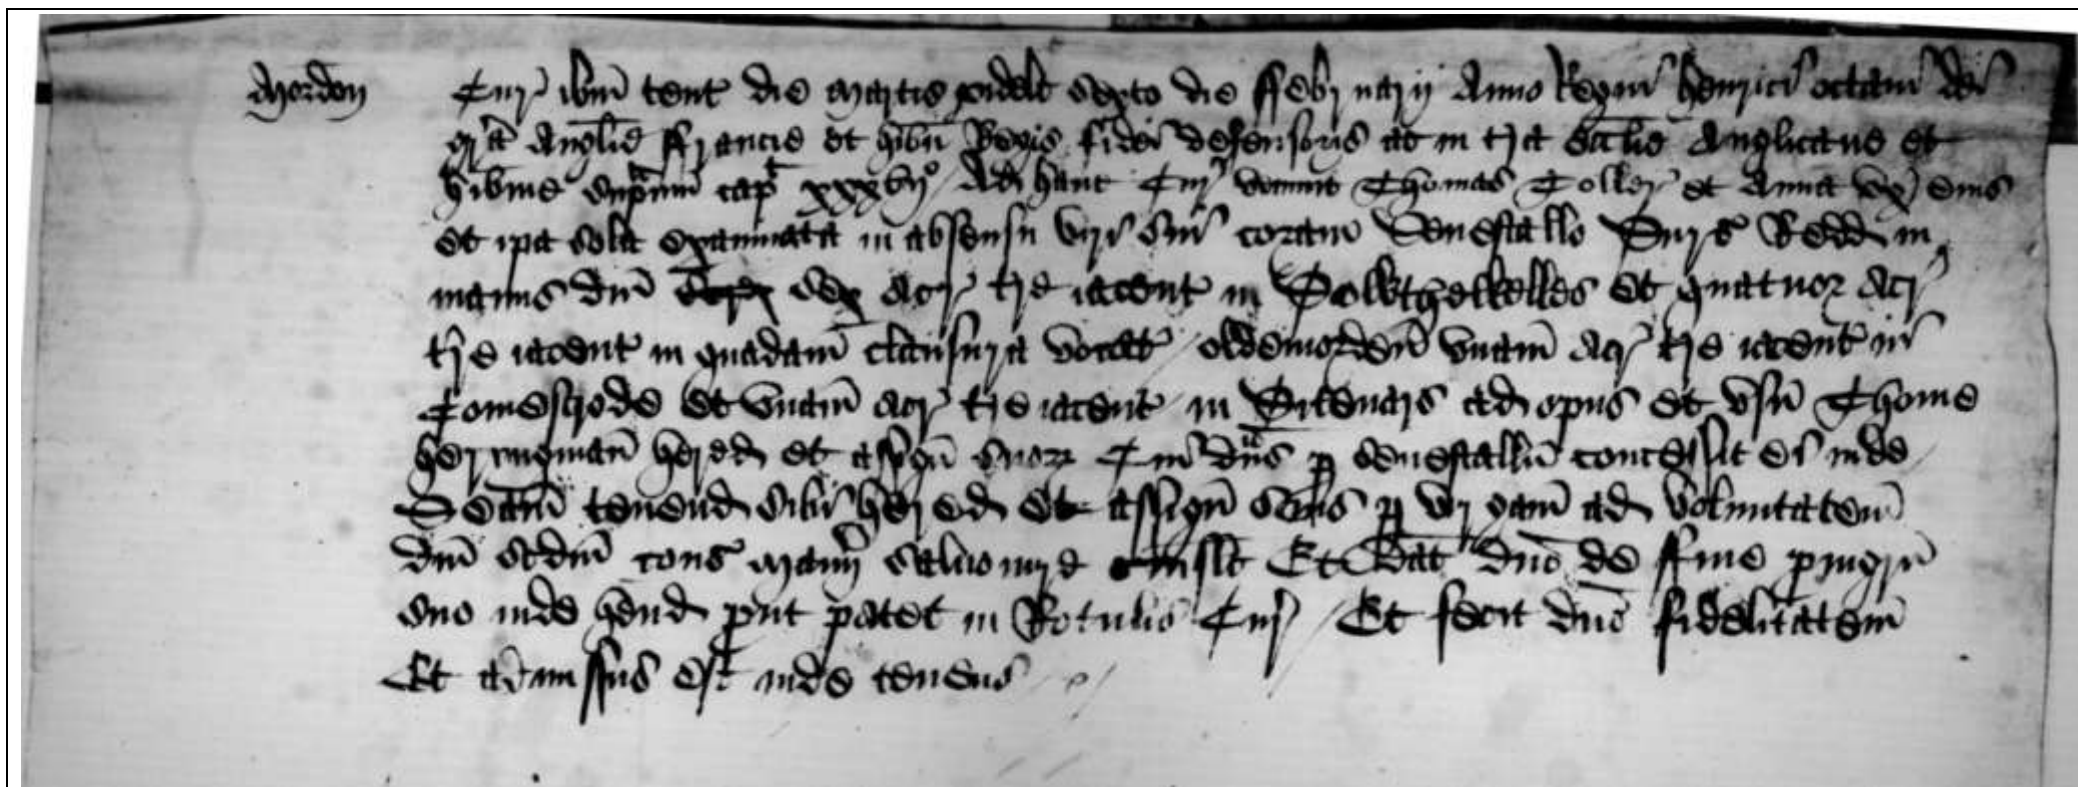 Mordon Cur ibm tent die Martis videlt sexto die ffebruarii Anno Regni Henrici octavi dei
gra Anglie ffrancie et hibn Regis fidei defensoris ac in tra ecclie Anglicane et
hibnie supmi capit xxxvijo Ad hanc Cur venerunt Thomas Toller et Anna ux eius
et ipa sola examinata in absensu viri sui coram Senescallo Redd in
manus dni sex acr tre iacent in et quatuor Acr
tre iacent in quadam clausura vocat oldemorden unam Acr tre iacent in
Comestrode et unam acr tre iacent in ad opus et usu Thome
heryngman hered et assign suor Cui dns p senescallu concessit ei inde
Seam tenend sibi hered et assign suis p virgam ad voluntatem
dni scdm cons Manij salvo iure Et dat dno de ffine p ingru
suo inde hend put patet in Rotulis Cur Et fecit dno fidelitatem
Et admissus est inde tenens